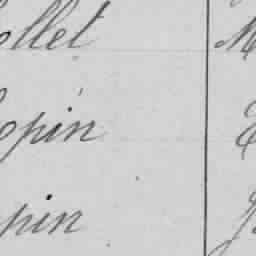 ollet M
opin E
pin J